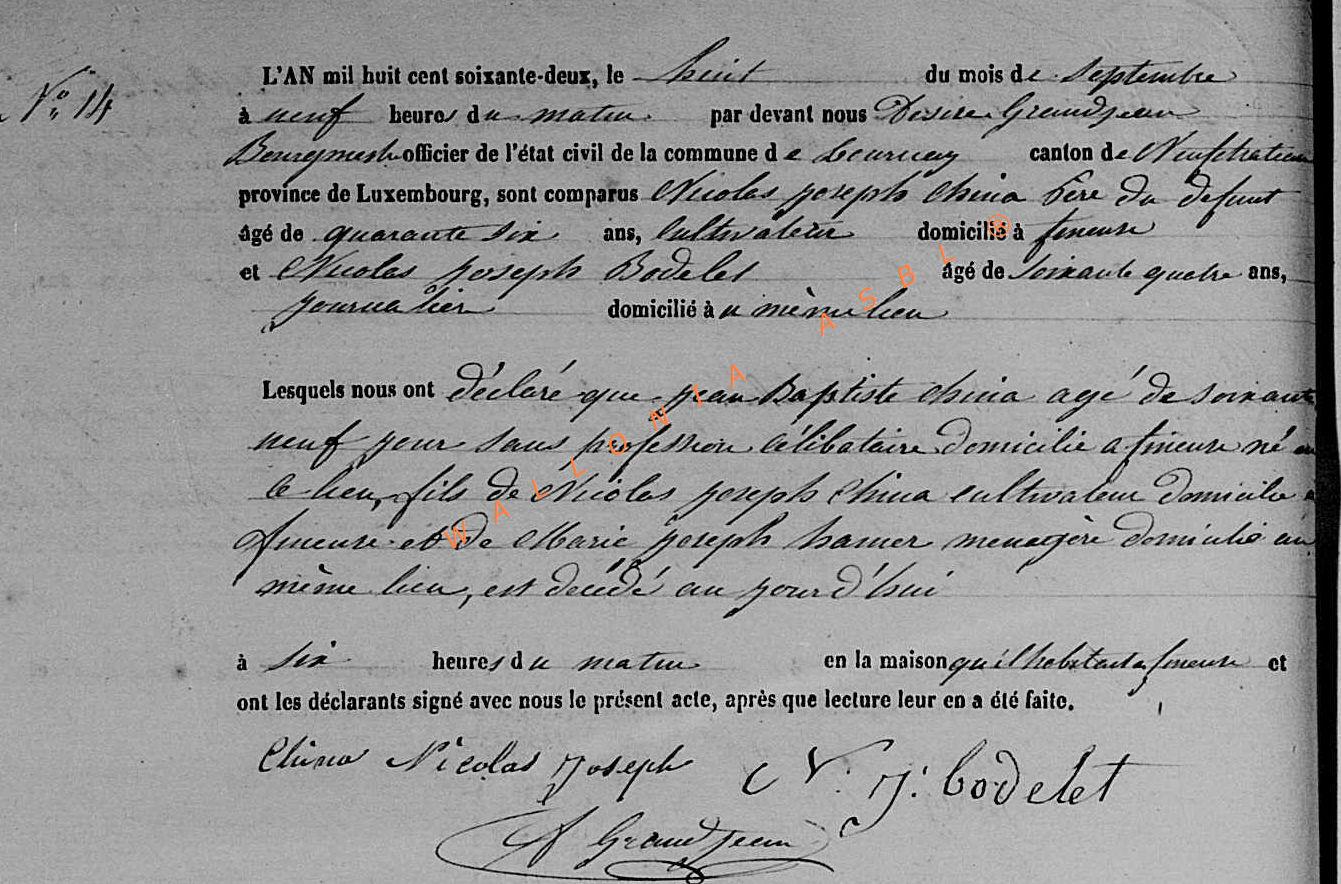 N° 14
L'AN mil huit cent soixante-deux, le huit du mois de Septembre
à neuf heures du matin par devant nous Desire Grandjean
Bourgmestre officier de l'état civil de la commune de Tournay canton de Neufchateau
province de Luxembourg, sont comparus Nicolas joseph China Père du defunt
âgé de quarante six ans, Cultivateur domicilié à fineuse
et Nicolas joseph Bodelet âgé de Soixante quatre ans,
journalier domicilié à u même lieu
Lesquels nous ont déclaré que jean Baptiste China agé de soixante
neuf jour sans profession Célibataire domicilié a fineuse né en
ce lieu, fils de Nicolas joseph China cultivateur domicilié a
fineuse et de Marie joseph hamer menagère domicilié au
même lieu, est décédé au jourd'hui
à Six heures du matin en la maison qu'il habitait a fineuse et
ont les déclarants signé avec nous le présent acte, après que lecture leur en a été faite.
China Nicolas Joseph N. J. bodelet
Grandjean
WALLONIA ASBL ®